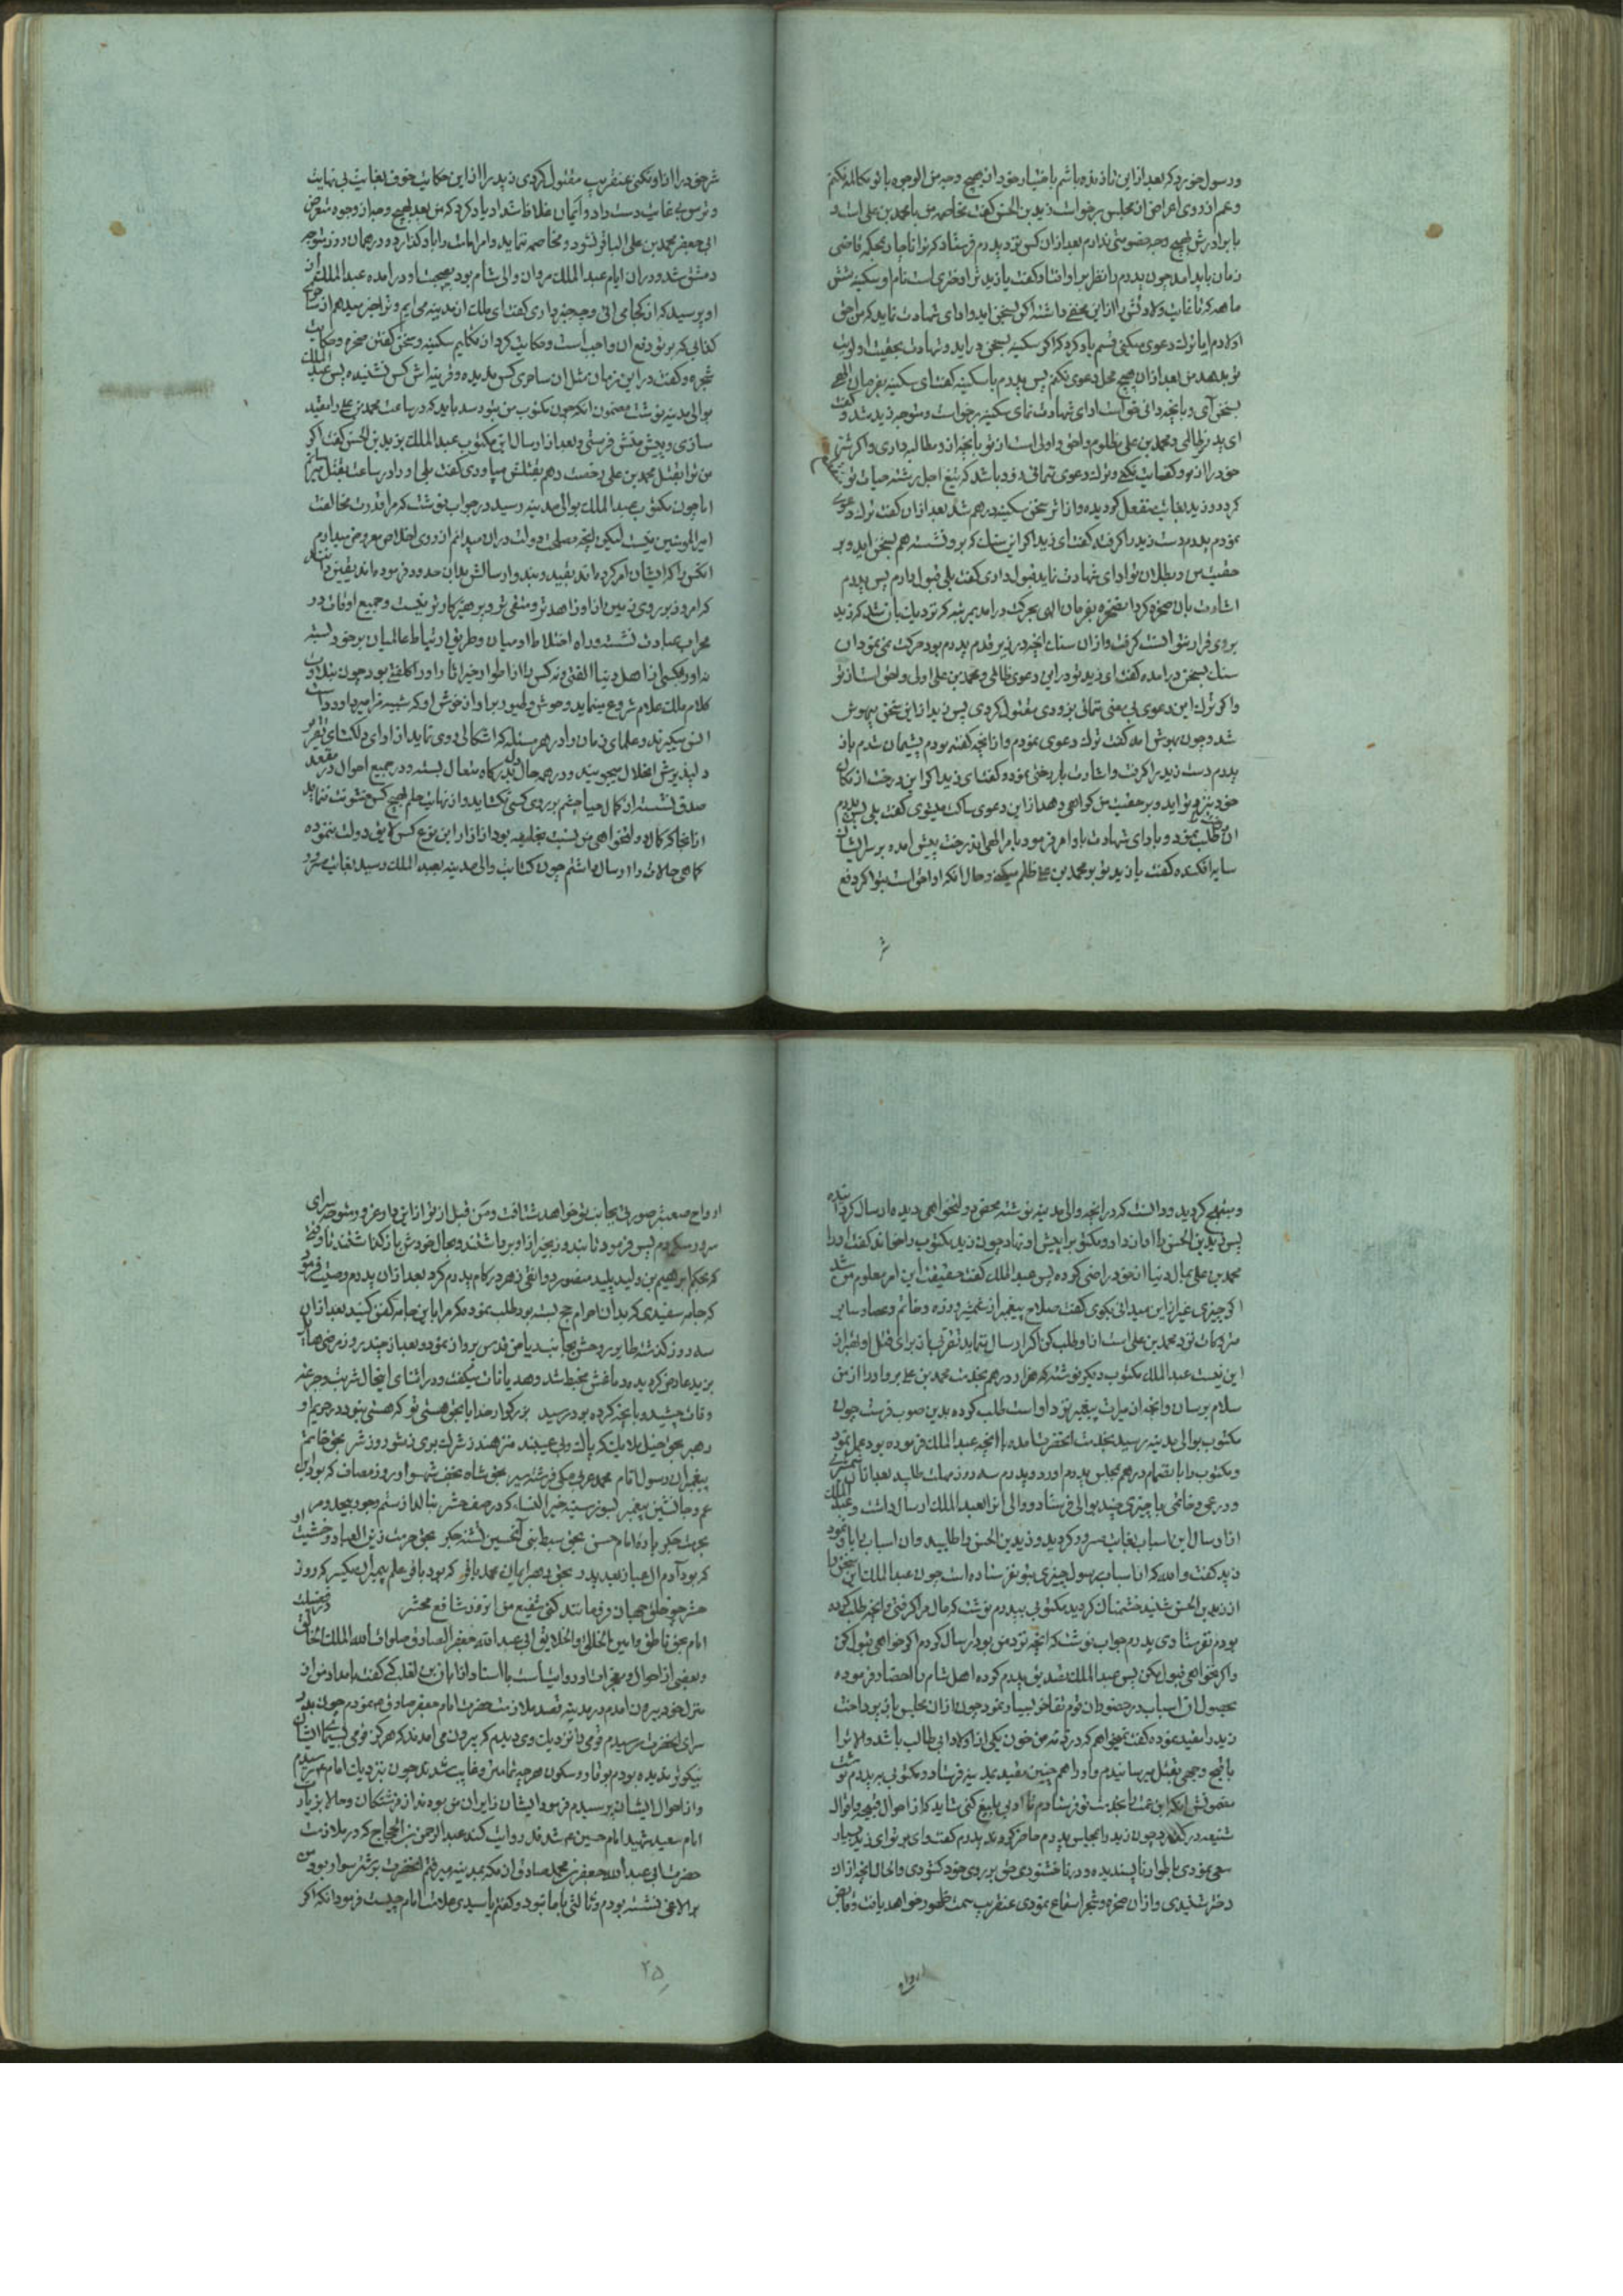 ورسول خورد که بعد ازاین تا زنده باشم باختیار خود ان هیچ وجه من الوجوه با تو مکالمه نکنم
وعم از روی اعراض از مجلس برخواست زید بن الحسن گفت مخاصمه من با محمد بن علی است و
با برادرش هیچ وجه خصومتی ندارم بعد ازان کس نزد پدرم فرستاد که ترا ناچار بمحکمه قاضی
زمان باید امد چون پدرم را نظر بر او افتاد گفت یا زید ترا دختری است نام او سکینه شش
ماهه که تا غایت ولادتش را از این مخفی داشته اکر بسخن اید و ادای شهادت نماید که من احق
اولادم ایا ترك دعوی میکنی قسم یاد کرد که اکر سکینه بسخن در اید و شهادت بحقیت اولویت
تو بدهد من بعد ازان هیچ محل دعوی نکنم پس پدرم با سکینه گفت ای سکینه بفرمان الهی
بسخن آی و بانچه دانی ادای شهادت نمای سکینه برخواست و متوجه زید شد و گفت
ای پدر تو ظالمی و محمد بن علی مظلوم واحق و اولی است از تو بانچه ازو مطالبه داری و اکر شر
خود را ازو کفایت نکنی و ترك دعوی ننمائی زود باشد که تیغ اجل رشته حیات تو
کردد و زید بغایت منفعل کردیده و از اثر سخن سکینه درهم شد بعد ازان گفت ترك دعوی
نمودم پدرم دست زید را کرفته گفت ای زید اکر این سنك که برو نشسته هم بسخن اید و بر
حقیت من و بطلان تو ادای شهادت نماید قبول داری گفت بلی قبول دارم پس پدرم
اشارت بان صخره کرد صخره بفرمان الهی بحرکت درامد بمرتبه که نزدیك بان شد که زید
بروی قرار نتوانست کرفت وازان سنك انچه در زیر قدم پدرم بود حرکت نمی نمود ان
سنك بسخن درامده گفت ای زید تو در این دعوی ظالمی و محمد بن علی اولی و احق است از تو
واکر ترك این دعوی بی معنی ننمائی بزودی مقتول کردی پس زید از این سخن بیهوش
شد و چون بهوش امد گفت ترك دعوی نمودم و از انچه گفته بودم پشیمان شدم باز
پدرم دست زید را کرفت و اشارت بدرختی نموده و گفت ای زید اکر این درخت از مکان
خود نزد تو اید و بر حقیت من کواهی دهد از این دعوی ساکت میشوی گفت بلی پس پدرم
ان درخت را طلب نمود و بادای شهادت باو امر فرمود بامر الهی ان درخت پیش امده بر سر ایشان
سایه افکنده گفت یا زید تو بر محمد بن علی ظلم میکنی و حال انکه او احق است بتو اکر دفع
شر
شر خود را از او نکنی عنقریب مقتول کردی زید را از این حکایت خوف بغایت بی نهایت
و ترس بی غایت دست داد و ایمان غلاظ شداد یاد کرد که من بعد بهیچ وجه از وجوه متعرض
ابی جعفر محمد بن علی الباقر نشود و مخاصمه ننماید و امر امامت را باو گذارد و در همان روز متوجه
دمشق شد و دران ایام عبد الملك مروان والی شام بود بصحبت او درامده عبد الملك از
او پرسید که از کجا می ائی و چه خبر داری گفت ای ملك از مدینه می ایم و ترا خبر میدهم از ساحر
کذابی که بر تو دفع ان واجب است و حکایت کردان تکلیم سکینه و سخن گفتن صخره و حکایت
شجره و گفت در این زمان مثل ان ساحری کس ندیده و قرینه اش کس نشنیده پس عبد الملك
بوالی مدینه نوشت مضمون انکه چون مکتوب من بتو رسد باید که در ساعت محمد بن علی را مقید
سازی و پیش منش فرستی و بعد از ارسال این مکتوب عبد الملك بزید بن الحسن گفت اکر
من ترا بقتل محمد بن علی رخصت دهم بقتلش میاوری گفت بلی او را در ساعت بقتل میرسانم
اما چون مکتوب عبد الملك بوالی مدینه رسید در جواب نوشت که مرا قدرت مخالفت
امیر المومنین نیست لیکن انچه مصلحت دولت دران میدانم از روی اخلاص معروض میدارم
انکس را که ایشان امر کرده اند بقید و بند و ارسالش بدان حدود فرموده اند یقین دانند
که امروز بر روی زمین از او زاهد تر و متقی تر و پرهیزکارتر نیست و جمیع اوقات در
محراب عبادت نشسته و راه اختلاط ادمیان و طریق ارتباط عالمیان بر خود بسته
نه او را بکسی از اهل دنیا الفتی و نه کس را از اطوار خیر اثار او کلفتی بود چون بتلاوت
کلام ملك علام شروع مینماید وحوش و طیور بر اواز خوش او که شبیه مزامیر داود است
انس میکیرند و علمای زمان را در هر مسئله که اشکالی روی نماید از ادای دلکشای تقریر
دلپذیرش انحلال میجویند و در همه حال دل بدرکاه متعال بسته و در جمیع احوال در مقعد
صدق نشسته از کمال حیا چشم بر روی کسی نکشاید و از نهایت حلم بهیچ کس خشونت ننماید
از انجا که کمال دولتخواهی من نسبت بخلیفه بود از ازار این نوع کس لایق دولت ننموده
کماهی حالات را ارسال داشتم چون کتابت والی مدینه بعبد الملك رسید بغایت مسرور
ومبتهج کردید و دانست که در انچه والی مدینه نوشته محقق دولتخواهی دیده ارسال کرده
پس زید بن الحسن را اواز داد و مکتوب را پیش او نهاد چون زید مکتوب را خواند گفت او را
محمد بن علی بمال دنیا از خود راضی کرده پس عبد الملك گفت حقیقت این امر معلوم من شد
اکر چیزی غیر از این میدانی بکوی گفت صلاح پیغمبر از شمشیر و زره و خاتم و عصا و سایر
متروکات نزد محمد بن علی است از او طلب کن اکر ارسال ننماید تقریبی بهتر از برای قتل او
این نیست عبد الملك مکتوب دیکر نوشت که هزار درهم بخدمت محمد بن علی بر و او را از من
سلام برسان و انچه از میراث پیغمبر نزد او است طلب کرده بدین صوب فرست چون
مکتوب بوالی مدینه رسید بخدمت انحضرت امده با انچه عبد الملك فرموده بود عمل نمود
و مکتوب را با تمام درهم بمجلس پدرم اورد و پدرم سه روز مهلت طلبید بعد ازان شمشیری
و درعی و خاتمی با چیزی چند بوالی فرستاد و والی انرا بعبد الملك ارسال داشت و عبد الملك
از ارسال این اسباب بغایت مسرور کردید و زید بن الحسن را طلبید و ان اسباب را باو نمود
زید گفت والله که از اسباب رسول چیزی بتو نفرستاده است چون عبد الملك این سخن را
از زید بن الحسن شنید خشمناك کردید مکتوبی بپدرم نوشت که مال مرا کرفتی و انچه طلب کرده
بودم نفرستادی پدرم جواب نوشت که انچه نزد من بود ارسال کردم اکر خواهی قبول کن
واکر نخواهی قبول مکن پس عبد الملك تصدیق پدرم کرده اهل شام را احضار فرموده
بحصول ان اسباب در حضور ان قوم تفاخر بسیار نمود چون ازان مجلس باز پرداخت
زید را مقید نموده گفت نمیخواهم که در ذمه من خون یکی از اولاد ابی طالب باشد والا ترا
باقبح وجهی بقتل میرسانیدم و او را همچنین مقید بمدینه فرستاد و مکتوبی به پدرم نوشت
مضمونش انکه ابن عمت را بخدمت تو فرستادم تا ادبی بلیغ کنی شاید که از احوال قبیحه و افعال
شنیعه در کذرد چون زید را بمجلس پدرم حاضر کردند پدرم گفت وای بر تو ای زید بسیار
سعی نمودی باطوار ناپسندیده و در ناخشنودی حق بر روی خود کشودی والحال انچه ازان
دختر شنیدی و ازان صخره و شجر استماع نمودی عنقریب سمت ظهور خواهد یافت و قابض
ارواح
ارواح صعبتر صورتی بجانب تو خواهد شتافت و من قبل از تو از این دار غرور متوجه سرای
سرور میکردم پس فرمود تا بند و زنجیر از او برداشتند و بحال خودش باز گذاشتند تا وقتی
که بحکم ابراهیم بن ولید پلید منصور دوانقی زهر در کام پدرم کرد بعد ازان پدرم وصیت فرمود
که جامه سفیدی که بدان احرام حج بسته بود طلب نموده مکر مرا باین جامه کفن کنید بعد ازان
سه روز کذشته طایر روحش بجانب ریاض قدس پرواز نمود و بعد از چند روز مرضی هایل
بزید عارض کردید و دماغش مخبط شد و هذیانات میکفت و در اثنای اینحال شربت و جرعه
وفات چشید و بانچه کرده بود رسید بزرکوار خدایا بحق هستی تو که هستی نبود در حریم او
رهبر بحق خیل ملایك که پاك و بی عیبند منزهند ز شرك بری ز شور و ز شر بحق خاتم
پیغمبران رسول انام محمد عربی مکی فرشته سیر بحق شاه نجف شهسوار روز مصاف که بود ابن
عم و جانشین پیغمبر بسوز سینه خیر النساء که در صف حشر بنالد از ستم وجور بیحد و مر
بحرمت جکر پاره امام حسن بحق سبط نبی آن حسین تشنه جکر بحق حرمت زین العباد و خشیت او
که بود آدم ال عبا ز بعد پدر بحق رهبر ایمان محمد باقر که بود باقر علم پیمبران یکسر که روز
حشر چو خلق جهان فرو مانند کنی شفیع من انروز شافع محشر در فضیلت
امام بحق ناطق وامین الخالق والخلایق ابی عبد الله جعفر الصادق صلوات الله الملك الخالق
وبعضی از احوال و معجزات او روایت است باسناد از ابان بن تغلب که گفت بامداد من از
منزل خود بیرون امدم در مدینه قصد ملازمت حضرت امام جعفر صادق ع نمودم چون بدر
سرای انحضرت رسیدم قومی را نزدیك وی دیدم که بیرون می امدند که هرکز قومی بسیمای ایشان
نیکوتر ندیده بودم بوقار و سکون هرچه تمامتر و غایب شدند چون بنزدیك امام ع رسیدم
و از احوال ایشان پرسیدم فرمود ایشان زایران من بودند از فرشتکان و حالا بزیارت
امام سعید شهید امام حسین ع شدند نقل روایت کند عبد الرحمن بن الحجاج که در ملازمت
حضرت ابی عبد الله جعفر بن محمد صادق از مکه بمدینه میرفتم انحضرت بر شتر سوار بود من
بر الاغی نشسته بودم و ثالثی با ما نبود و گفتم یا سیدی علامت امام چیست فرمود انکه اکر
۲۵